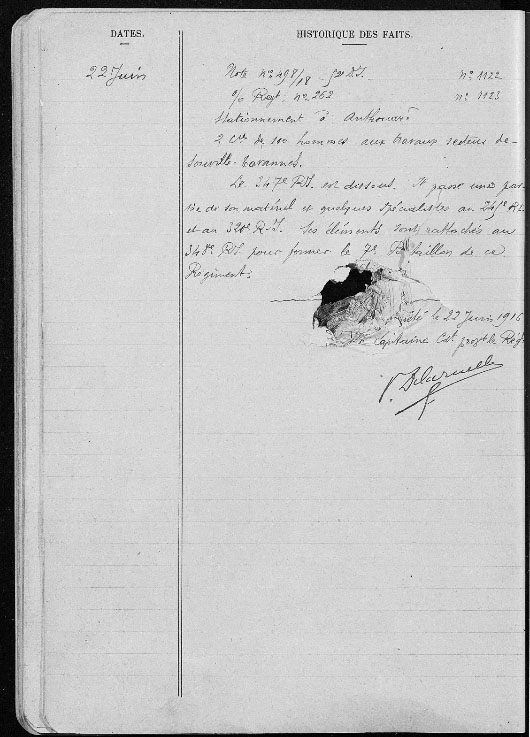 DATES.
HISTORIQUE DES FAITS.
22 Juin
Note n° 498/18 D.I. n° 1122
Regt. n° 262 n° 1123
Stationnement à
2 Cies de 100 hommes aux travaux secteur de
Souville-Tavannes.
Le 347e RI. est dissous. Il passe une par-
tie de son matériel et quelques spécialistes au 245e R.I.
et au 320e R.I. Ses éléments sont rattachés au
348e RI. pour former le 7e de ce
Régiment.
le 22 Juin 1916
Capitaine Ct provt le Rég